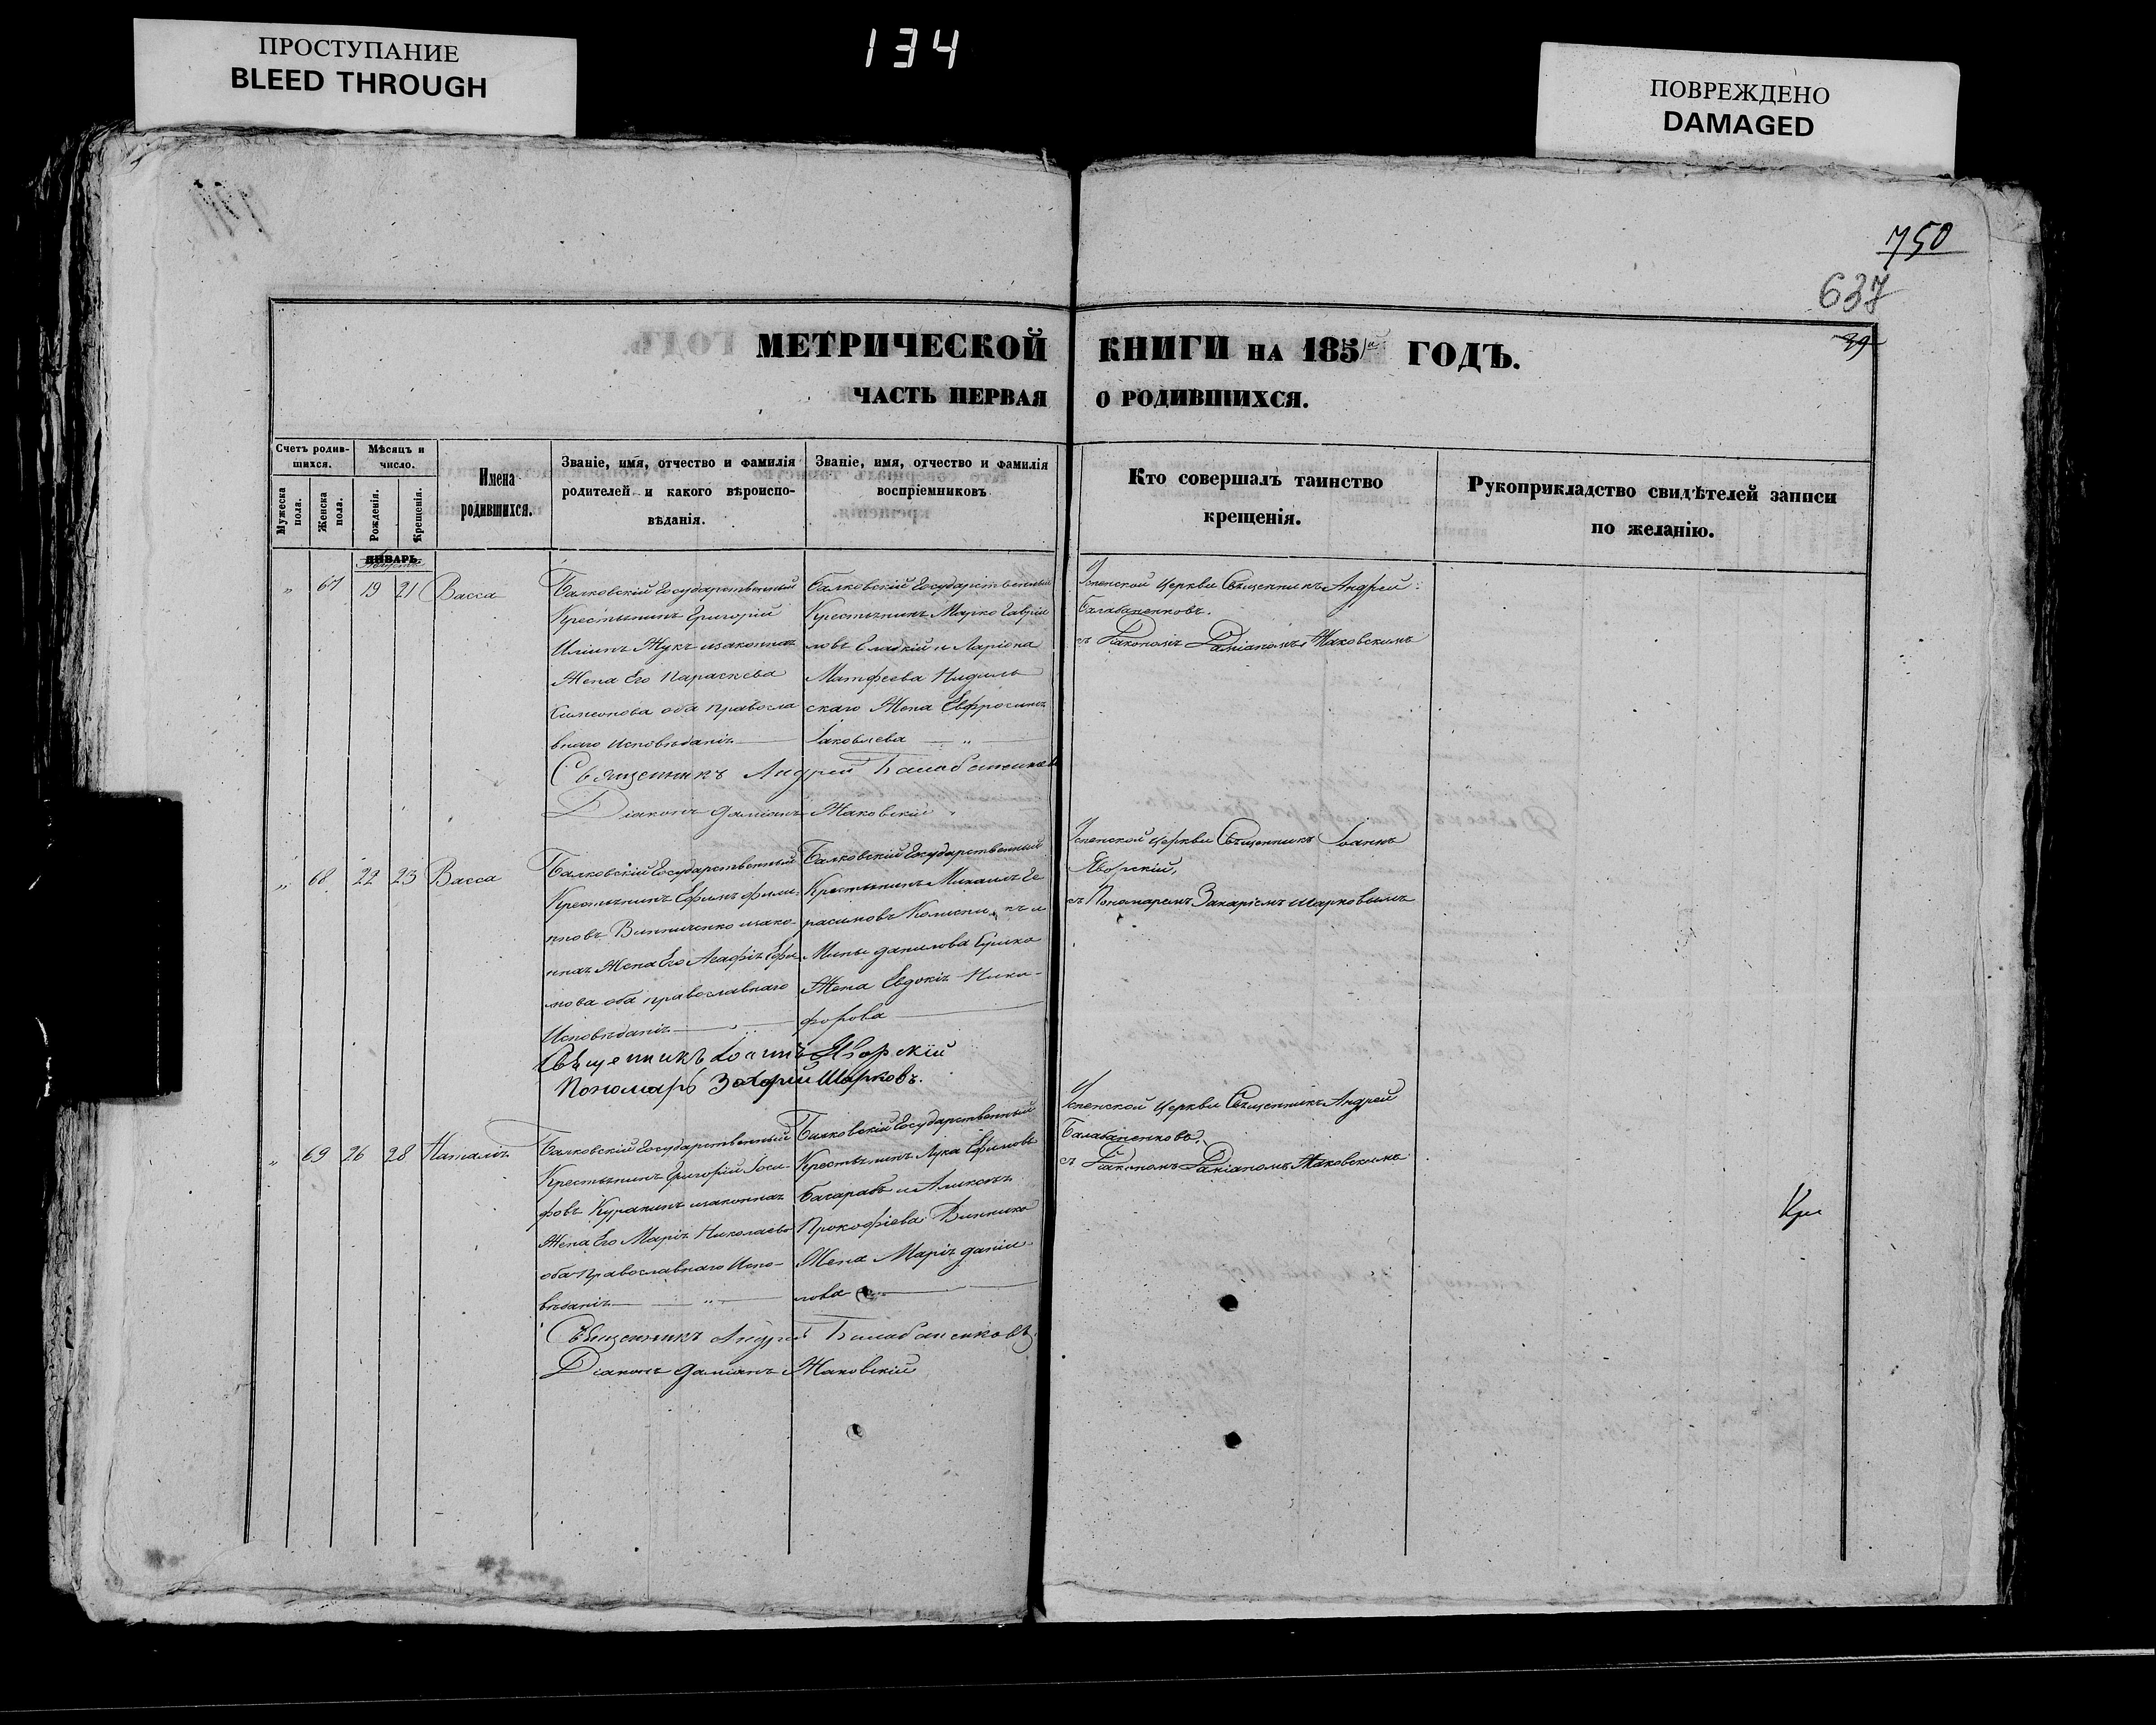 ПРОСТУПАНИЕ
BLEED THROUGH
134
ПОВРЕЖДЕНО
DAMAGED
750
637
МЕТРИЧЕСКОЙ КНИГИ НА 185 ГОДЪ.
ЧАСТЬ ПЕРВАЯ О РОДИВШИХСЯ.
Счетъ родив-
шихся.
Мужеска пола.
Женска пола.
Мѣсяцъ и
число.
Рожденія.
Крещенія.
Имена
родившихся.
Званіе, имя, отчество и фамилія
родителей и какого вѣроиспо-
вѣданія.
Званіе, имя, отчество и фамилія
воспріемниковъ
Кто совершалъ таинство
крещенія.
Рукоприкладство свидѣтелей записи
по желанію.
ЯНВАРЬ.
„ 67 19 21 Васса
Балковскій Государственный
Крестьянинъ Григорій
Иліинъ Жукъ изаконная
Жена Его Параскева
Симеонова оба правосла
внаго Исповѣданія
Балковскій Государственный
Крестьянинъ Марко Гаврiи
ловъ Гладкій и Ларіона
Матфеева
скаго Жена Евфросинія
Іаковлева „
Успенской церкви Священникъ Андрей
Балабаненковъ.
съ Діакономъ Даміаномъ Жаковскимъ
Священникъ Андрей Балабаненковъ
Діаконъ Даміанъ Жаковскій
„ 68 22 23 Васса
Балковскій Государственный
Крестьянинъ Ефимъ Фили
повъ Винниченко изако-
нная Жена Его Агафія Ефи
мова оба православнаго
Исповѣданія
Балковскій Государственный
Крестьянинъ Михаилъ Ге
расимовъ и
Мины Данилова
Жена Евдокія Ники-
форова
Успенской церкви Священникъ Іоаннъ
Яворскій,
съ Пономаремъ Захаріемъ Шарковымъ
Священникъ Іоаннъ Яворскій
Пономарь Захарій Шарковъ.
„ 69 26 28 Наталія
Балковскій Государственный
Крестьянинъ Григорій Іоси-
фовъ Куракинъ изаконная
Жена Его Марія Николаева
оба Православнаго Испо-
вѣданія „
Балковскій Государственный
Крестьянинъ Лука Ефимовъ
и
Прокофіева Винника
Жена Марія Даніи
лова
Успенской церкви Священникъ Андрей
Балабаненковъ.
съ Діакономъ Даміаномъ Жаковскимъ
Священникъ Андрей Балабаненковъ
Діаконъ Даміанъ Жаковскій